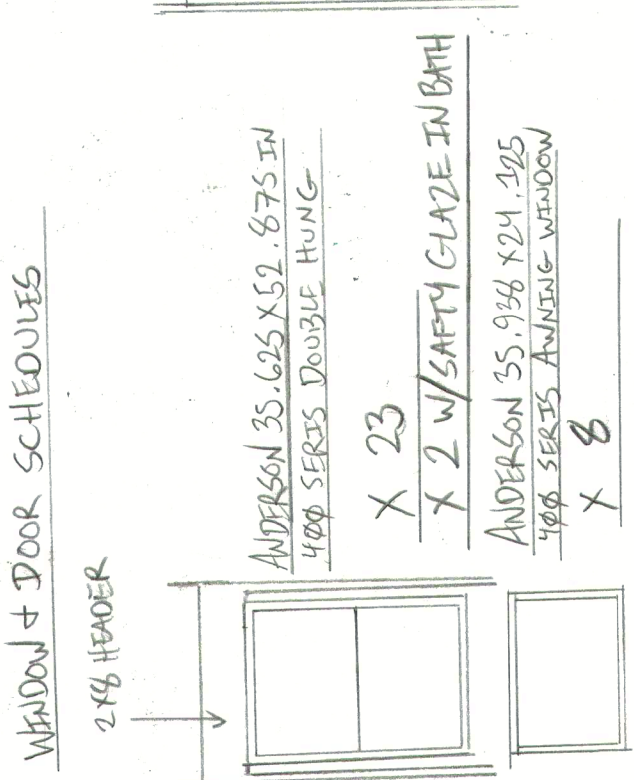 WINDOW & DOOR SCHEDULES
2X8 HEADER
ANDERSON 35.625 X 52.875 IN
400 SERIS DOUBLE HUNG
X 23
X 2 W/SAFTY GLAZE IN BATH
ANDERSON 35.938 X 24.125
400 SERIS AWNING WINDOW
X 8